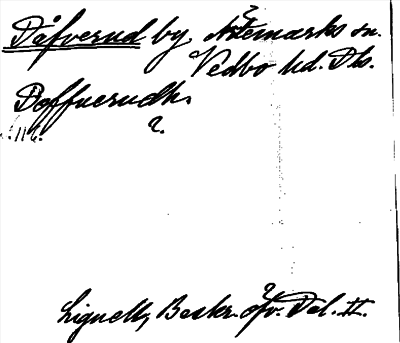 Dåfverud by Nötemarks sn.
Vedbo hd. Dls.
Doffuerudh.
?.
Lignell, Beskr. öfv. Dal. II.